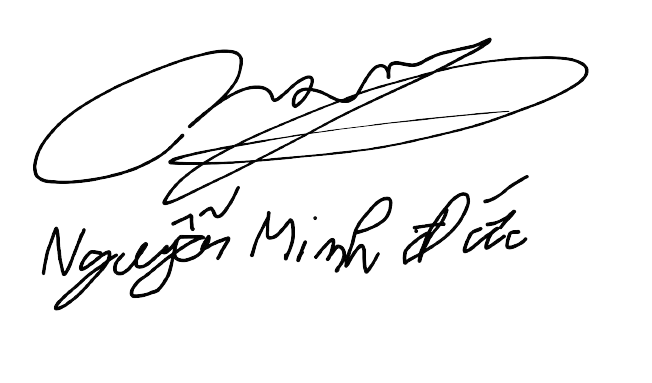 Nguyễn Minh Đức